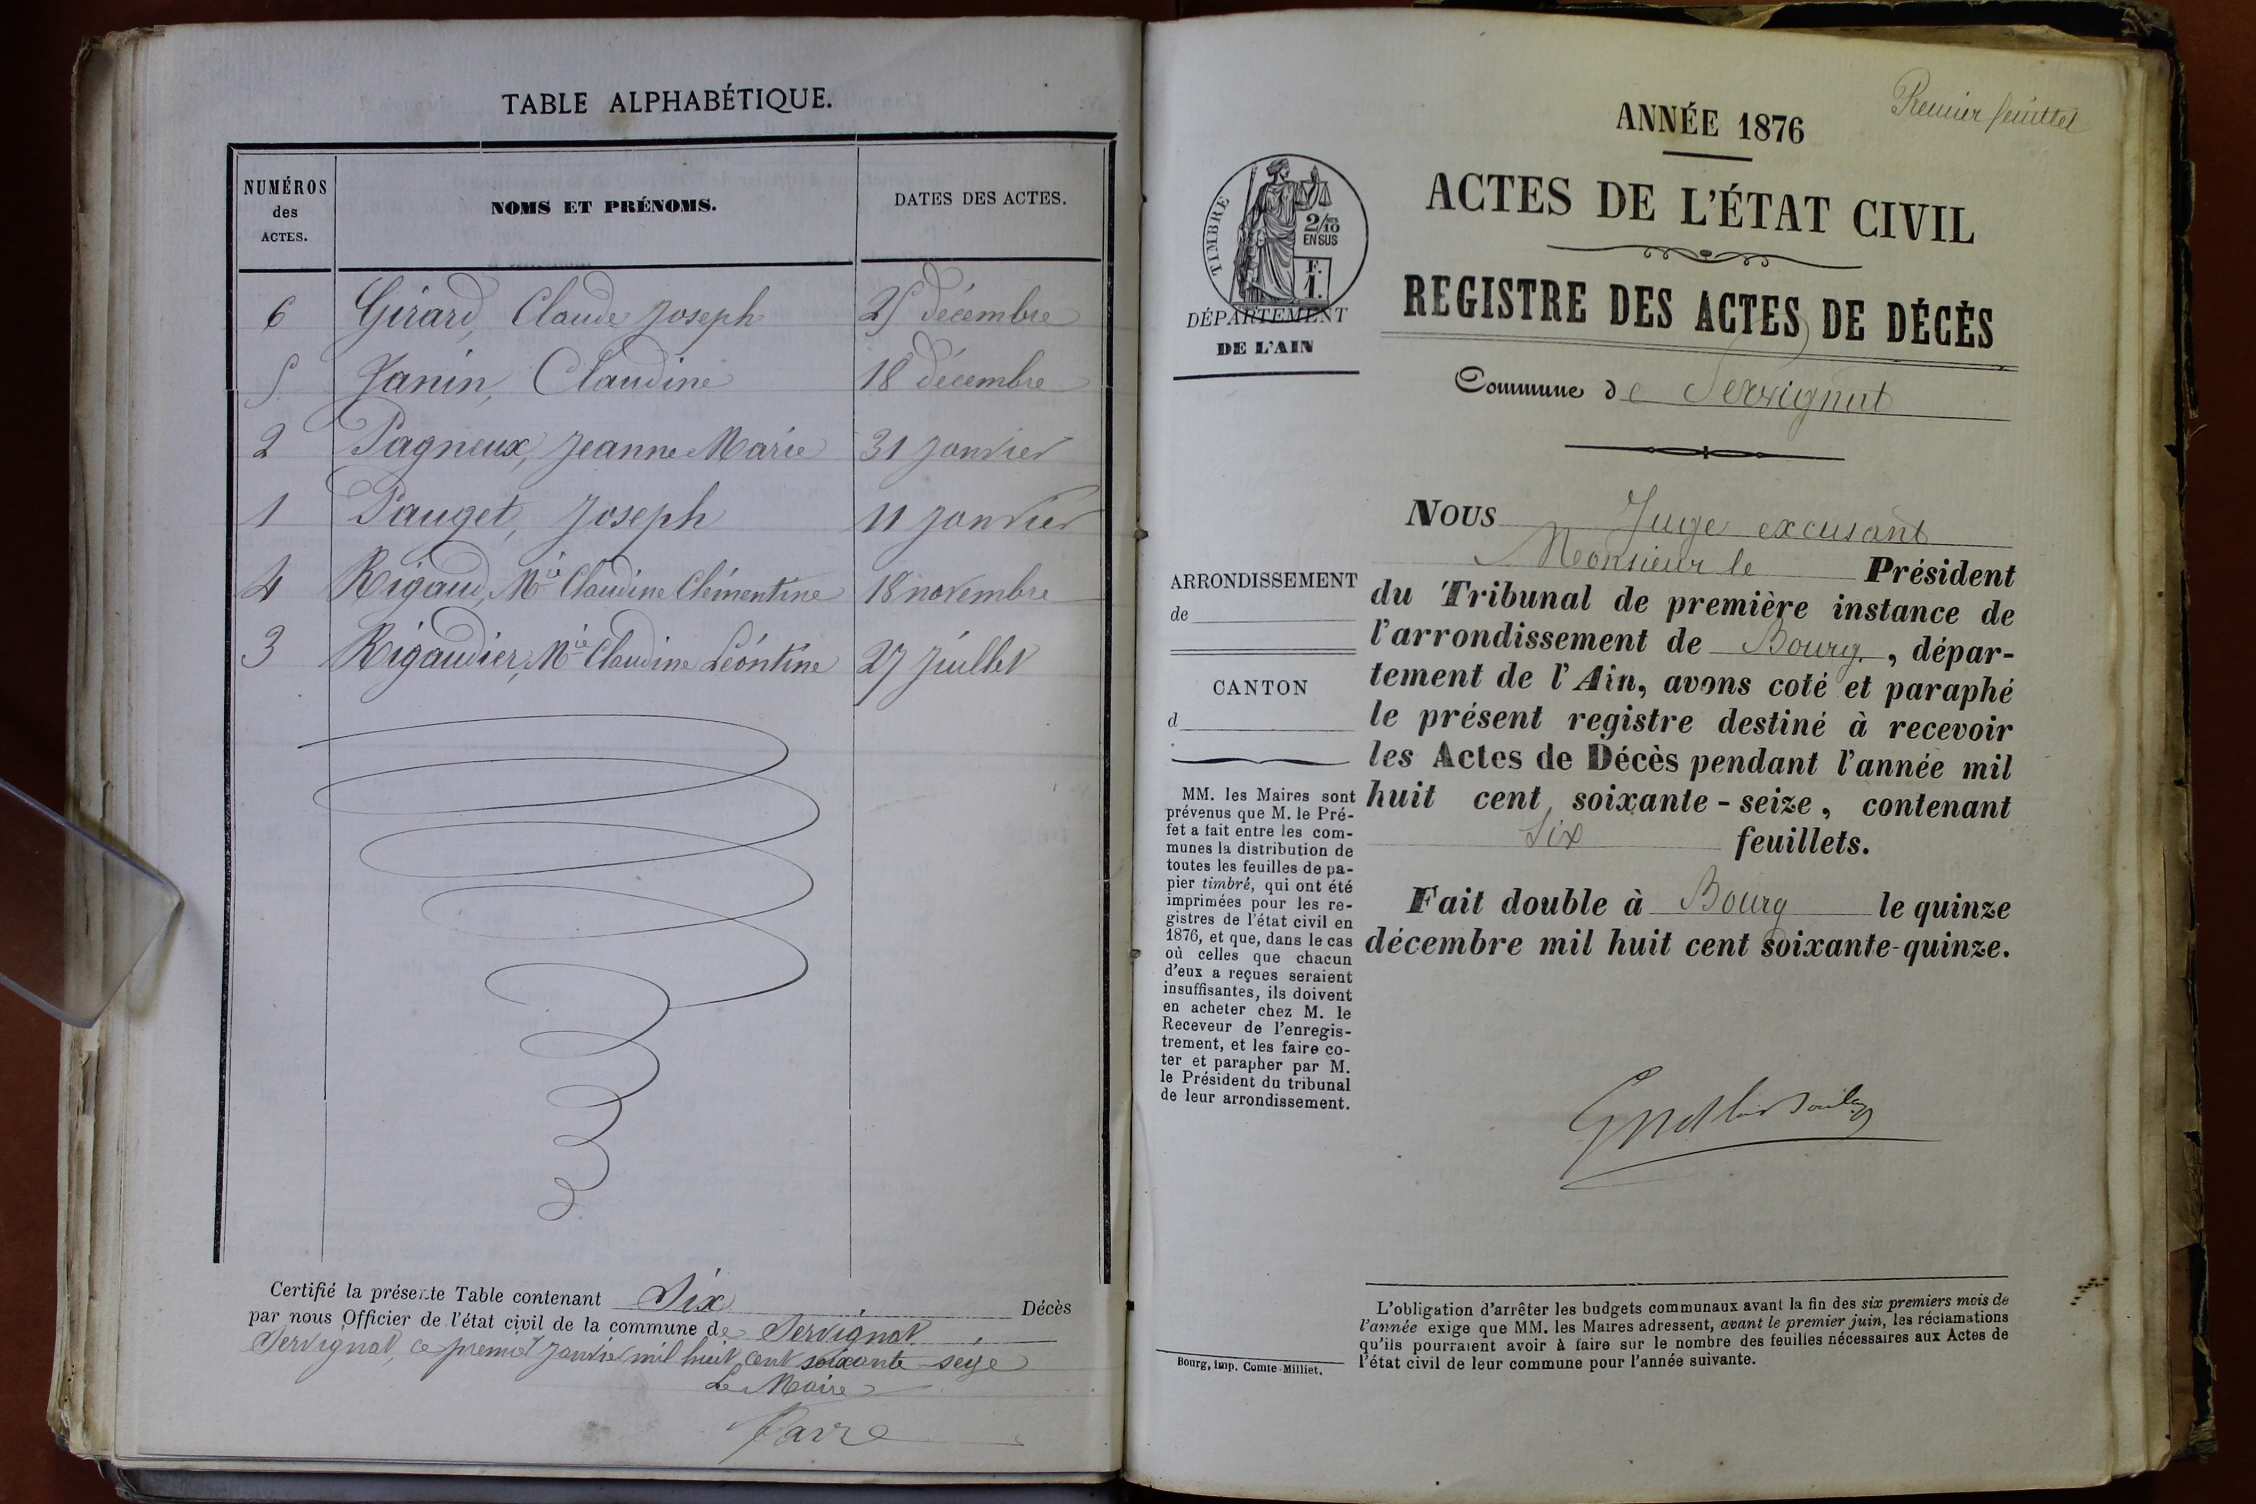 TABLE ALPHABÉTIQUE.
NUMÉROS
des
ACTES.
NOMS ET PRÉNOMS.
DATES DES ACTES.
6 Girard, Claude Joseph 25 décembre
5 Janin, Claudine 18 décembre
2 Pagneux, Jeanne Marie 31 janvier
1 Pauget, Joseph 11 janvier
4 Rigaud, Mie Claudine Clémentine 18 novembre
3 Rigaudier, Mie Claudine Léontine 27 juillet
Certifié la présente Table contenant Six Décès
par nous Officier de l'état civil de la commune de Servignat
Servignat, ce premier janvier mil huit cent soixante seize
Le Maire
Favre
Premier feuillet
ANNÉE 1876
ACTES DE L'ÉTAT CIVIL
REGISTRE DES ACTES DE DÉCÈS
Commune de Servignat
TIMBRE
2/10
EN SUS
F.
1.
DÉPARTEMENT
DE L'AIN
ARRONDISSEMENT
de
CANTON
d
MM. les Maires sont
prévenus que M. le Pré-
fet a fait entre les com-
munes la distribution de
toutes les feuilles de pa-
pier timbré, qui ont été
imprimées pour les re-
gistres de l'état civil en
1876, et que, dans le cas
où celles que chacun
d'eux a reçues seraient
insuffisantes, ils doivent
en acheter chez M. le
Receveur de l'enregis-
trement, et les faire co-
ter et parapher par M.
le Président du tribunal
de leur arrondissement.
NOUS Juge excusant
Monsieur le Président
du Tribunal de première instance de
l'arrondissement de Bourg, dépar-
tement de l'Ain, avons coté et paraphé
le présent registre destiné à recevoir
les Actes de Décès pendant l'année mil
huit cent soixante-seize, contenant
Six feuillets.
Fait double à Bourg le quinze
décembre mil huit cent soixante-quinze.
L'obligation d'arrêter les budgets communaux avant la fin des six premiers mois de
l'année exige que MM. les Maires adressent, avant le premier juin, les réclamations
qu'ils pourraient avoir à faire sur le nombre des feuilles nécessaires aux Actes de
l'état civil de leur commune pour l'année suivante.
Bourg, imp. Comte-Milliet.